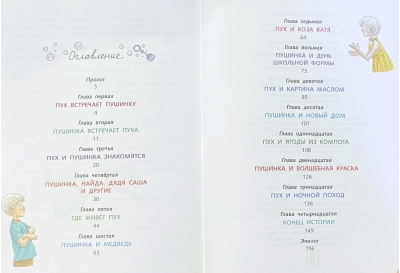 Оглавление
Пролог
3
Глава первая
ПУХ ВСТРЕЧАЕТ ПУШИНКУ
4
Глава вторая
ПУШИНКА ВСТРЕЧАЕТ ПУХА
11
Глава третья
ПУХ И ПУШИНКА ЗНАКОМЯТСЯ
20
Глава четвёртая
ПУШИНКА, НАЙДА, ДЯДЯ САША
И ДРУГИЕ
30
Глава пятая
ГДЕ ЖИВЁТ ПУХ
44
Глава шестая
ПУШИНКА И МЕДВЕДЬ
53
Глава седьмая
ПУХ И КОЗА КАТЯ
64
Глава восьмая
ПУШИНКА И ДЕНЬ
ШКОЛЬНОЙ ФОРМЫ
73
Глава девятая
ПУХ И КАРТИНА МАСЛОМ
85
Глава десятая
ПУШИНКА И НОВЫЙ ДОМ
101
Глава одиннадцатая
ПУХ И ЯГОДЫ ИЗ КОМПОТА
108
Глава двенадцатая
ПУШИНКА И ВОЛШЕБНАЯ КРАСКА
126
Глава тринадцатая
ПУХ И НОЧНОЙ ПОХОД
136
Глава четырнадцатая
КОНЕЦ ИСТОРИИ
149
Эпилог
156